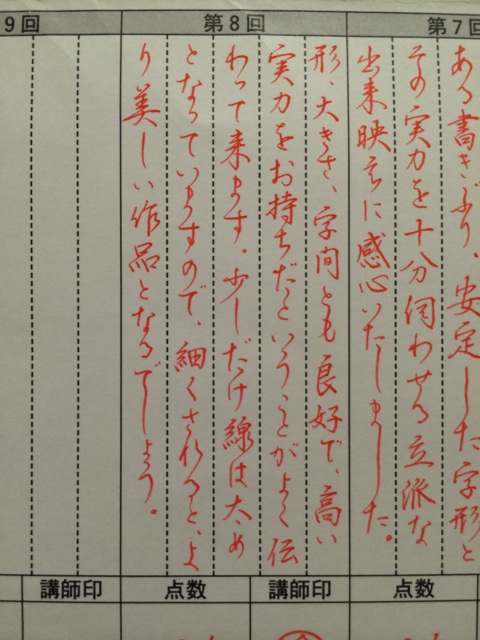 第7回
ある書きぶり、安定した字形と
その実力を十分伺わせる立派な
出来映えに感心いたしました。
第8回
形、大きさ、字間とも良好で、高い
実力をお持ちだということがよく伝
わって来ます。少しだけ線は太め
となっていますので、細くされると、よ
り美しい作品となるでしょう。
9回
点数
講師印
点数
講師印